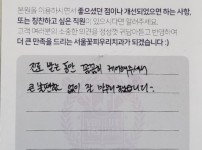 병원을 이용하시면서 좋으셨던 점이나 개선되었으면 하는 사항,
또는 칭찬하고 싶은 직원이 있으시다면 알려주세요.
고객 여러분의 소중한 의견을 정성껏 귀담아듣고 반영하여
더 큰 만족을 드리는 서울꽃피우리치과가 되겠습니다 :)
진료 받는 동안 꼼꼼히
큰 불편함 없이 잘